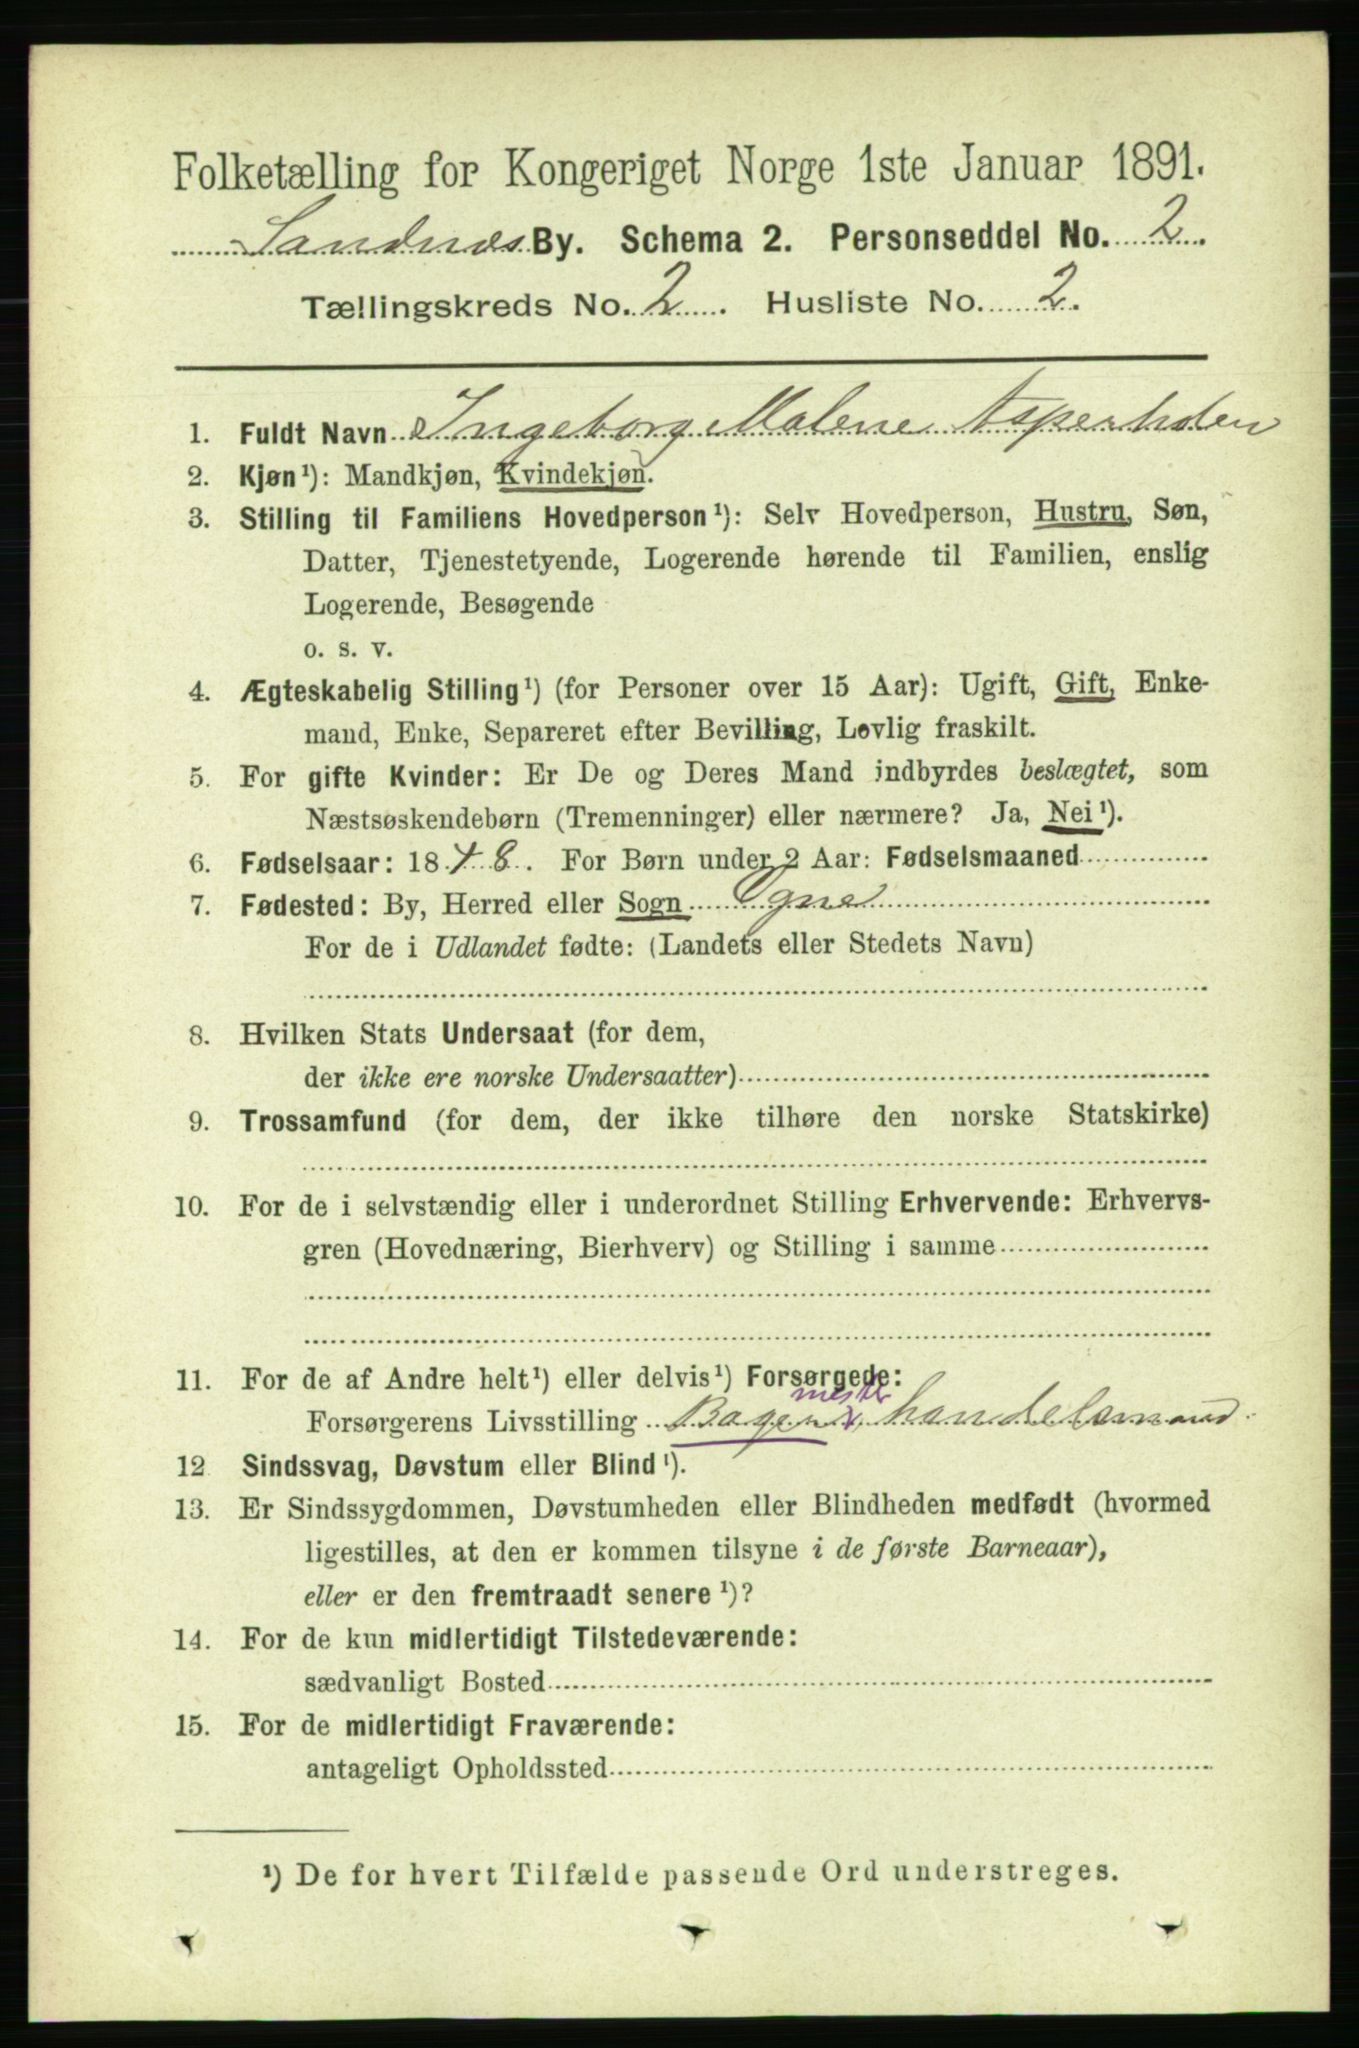 Folketælling for Kongeriget Norge 1ste Januar 1891.
Sandnæs By. Schema 2. Personseddel No. 2
Tællingskreds No. 2. Husliste No. 2.
1. Fuldt Navn Ingeborg Malene Asperholen
2. Kjøn¹): Mandkjøn, Kvindekjøn.
3. Stilling til Familiens Hovedperson¹): Selv Hovedperson, Hustru, Søn,
Datter, Tjenestetyende, Logerende hørende til Familien, enslig
Logerende, Besøgende
o. s. v.
4. Ægteskabelig Stilling¹) (for Personer over 15 Aar): Ugift, Gift, Enke-
mand, Enke, Separeret efter Bevilling, Lovlig fraskilt.
5. For gifte Kvinder: Er De og Deres Mand indbyrdes beslægtet, som
Næstsøskendebørn (Tremenninger) eller nærmere? Ja, Nei¹).
6. Fødselsaar: 1848. For Børn under 2 Aar: Fødselsmaaned
7. Fødested: By, Herred eller Sogn Ogne
For de i Udlandet fødte: (Landets eller Stedets Navn)
8. Hvilken Stats Undersaat (for dem,
der ikke ere norske Undersaatter)
9. Trossamfund (for dem, der ikke tilhøre den norske Statskirke)
10. For de i selvstændig eller i underordnet Stilling Erhvervende: Erhvervs-
gren (Hovednæring, Bierhverv) og Stilling i samme
11. For de af Andre helt¹) eller delvis¹) Forsørgede:
mester
Forsørgerens Livsstilling Bager, handelsmand.
12 Sindssvag, Døvstum eller Blind¹).
13. Er Sindssygdommen, Døvstumheden eller Blindheden medfødt (hvormed
ligestilles, at den er kommen tilsyne i de første Barneaar),
eller er den fremtraadt senere¹)?
14. For de kun midlertidigt Tilstedeværende:
sædvanligt Bosted
15. For de midlertidigt Fraværende:
antageligt Opholdssted
¹) De for hvert Tilfælde passende Ord understreges.